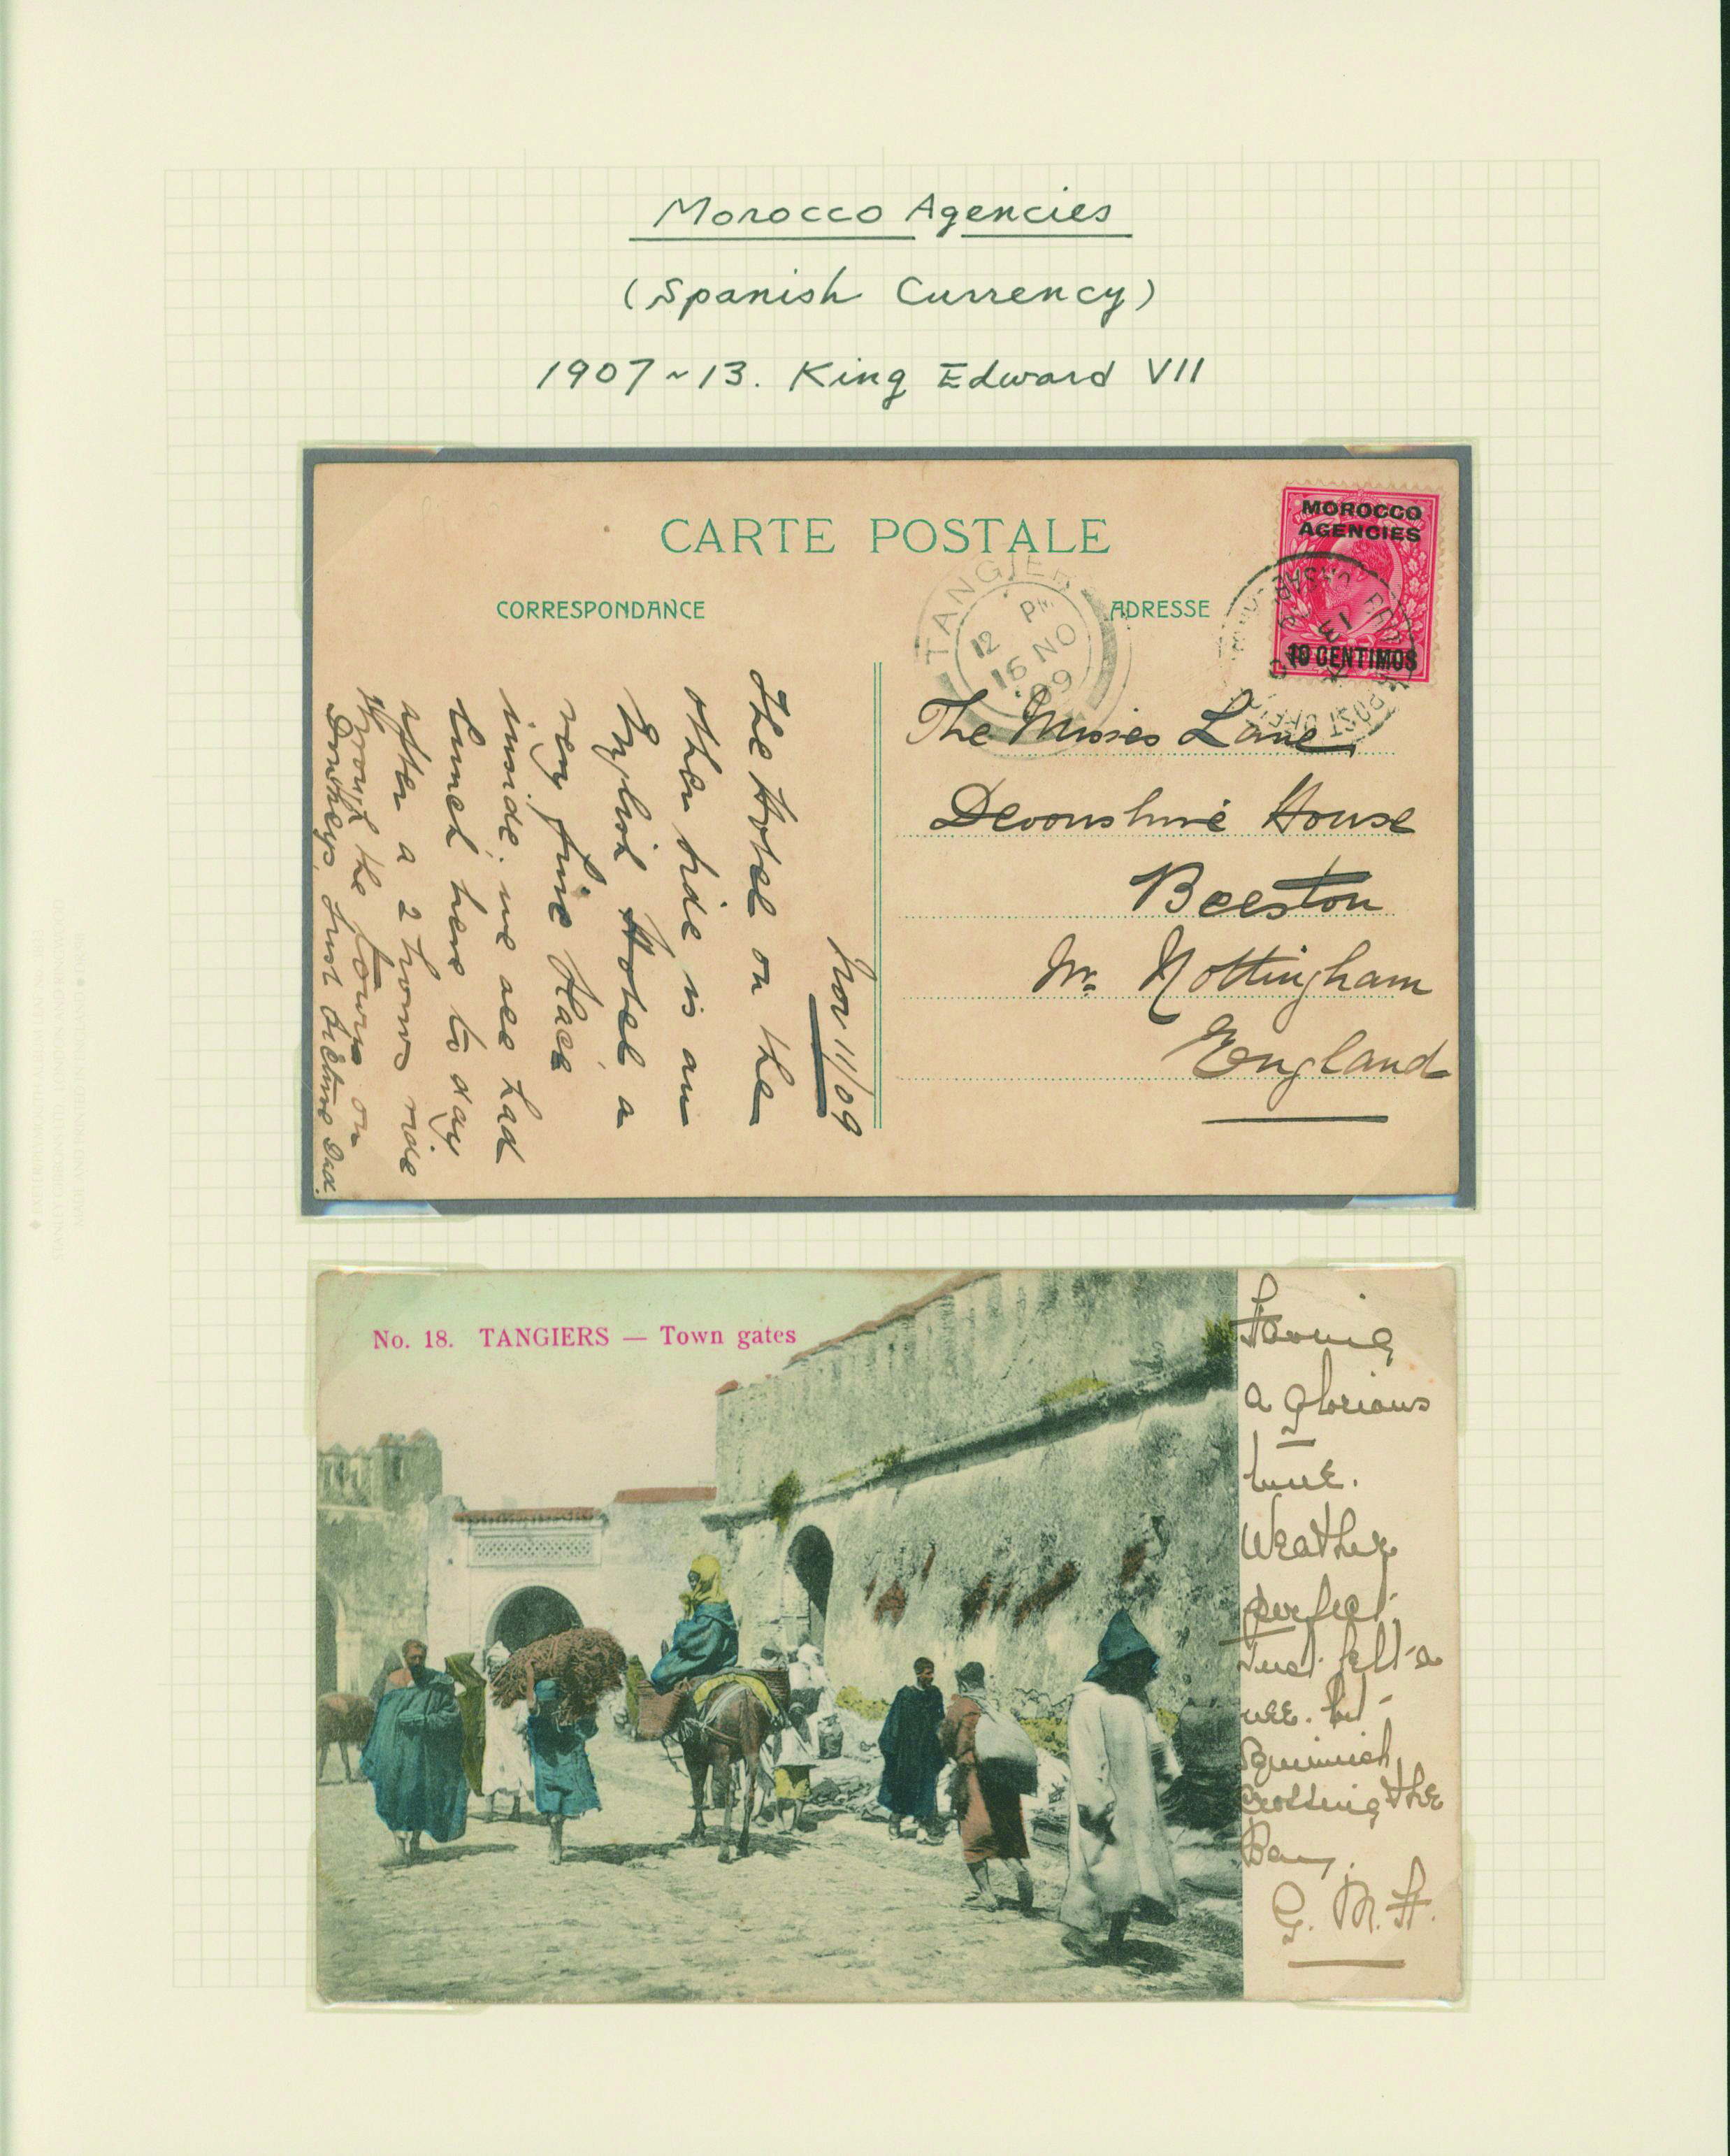 Morocco Agencies
(Spanish Currency)
1907~13. King Edward VII
CARTE POSTALE
CORRESPONDANCE
ADRESSE
MOROCCO
AGENCIES
10 CENTIMOS
TANGIER
12 PM
16 NO
09
BRITISH POST OFFICE
13
The Misses Lane
Devonshire House
Beeston
Nr. Nottingham
England
Nov 11/09
The Hotel on the
other side is an
English Hotel a
very fine place
inside. we all had
lunch here to day
after a 2 hours ride
through the town on
Donkeys. Just picture Dad.
No. 18. TANGIERS — Town gates
Having
a glorious
time.
Weather
perfect.
Just felt a
wee bit
squimish
crossing the
Bay.
G. M. H.
STANLEY GIBBONS LTD
MADE AND PRINTED IN ENGLAND